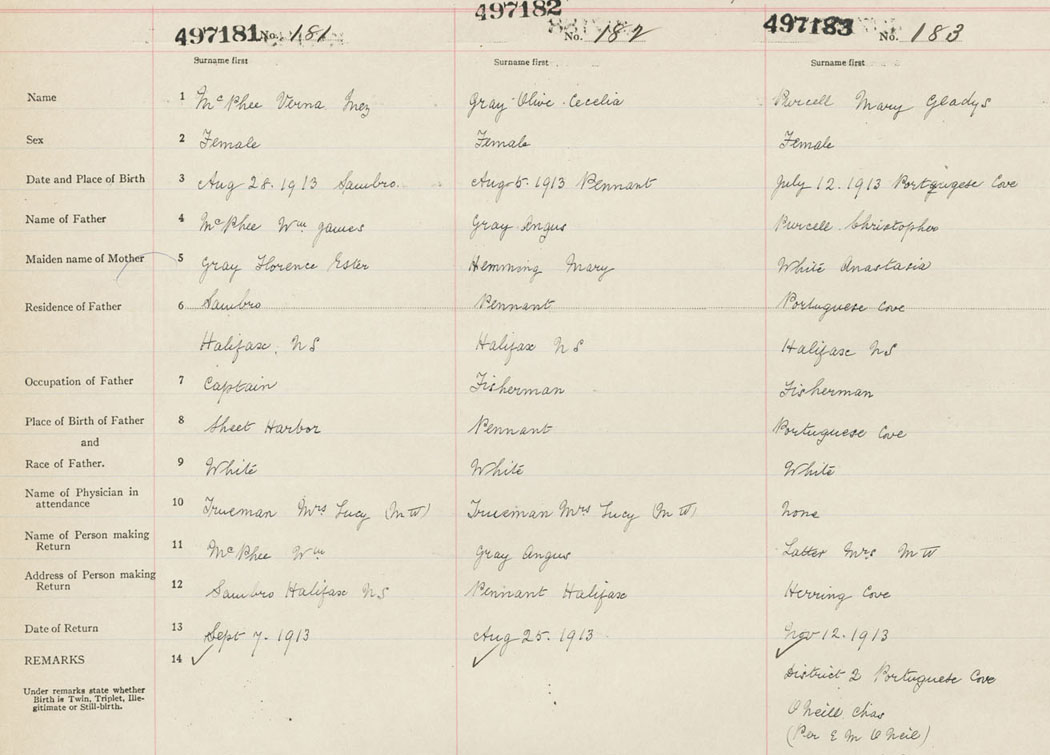 497181 No. 181 497182 No. 182 497183 No. 183
Surname first Surname first Surname first
Name 1 McPhee Verna Inez Gray Olive Cecelia Purcell Mary Gladys
Sex 2 Female Female Female
Date and Place of Birth 3 Aug 28. 1913 Sambro. Aug 5. 1913 Pennant July 12. 1913 Portugese Cove
Name of Father 4 McPhee Wm James Gray Angus Purcell Christopher
Maiden name of Mother 5 Gray Florence Ester Hemming Mary White Anastasia
Residence of Father 6 Sambro Pennant Portuguese Cove
Halifax, NS Halifax NS Halifax NS
Occupation of Father 7 Captain Fisherman Fisherman
Place of Birth of Father 8 Sheet Harbor Pennant Portuguese Cove
and
Race of Father. 9 White White White
Name of Physician in
attendance 10 Trueman Mrs Lucy (M W) Trueman Mrs Lucy (M W) None
Name of Person making
Return 11 McPhee Wm Gray Angus Latter Mrs M W
Address of Person making
Return 12 Sambro Halifax NS Pennant Halifax Herring Cove
Date of Return 13 Sept 7. 1913 Aug 25. 1913 Nov 12. 1913
REMARKS 14 District 2 Portuguese Cove
Under remarks state whether
Birth is Twin, Triplet, Ille-
gitimate or Still-birth.
O'Neill Chas
(Per E M O'Neil)